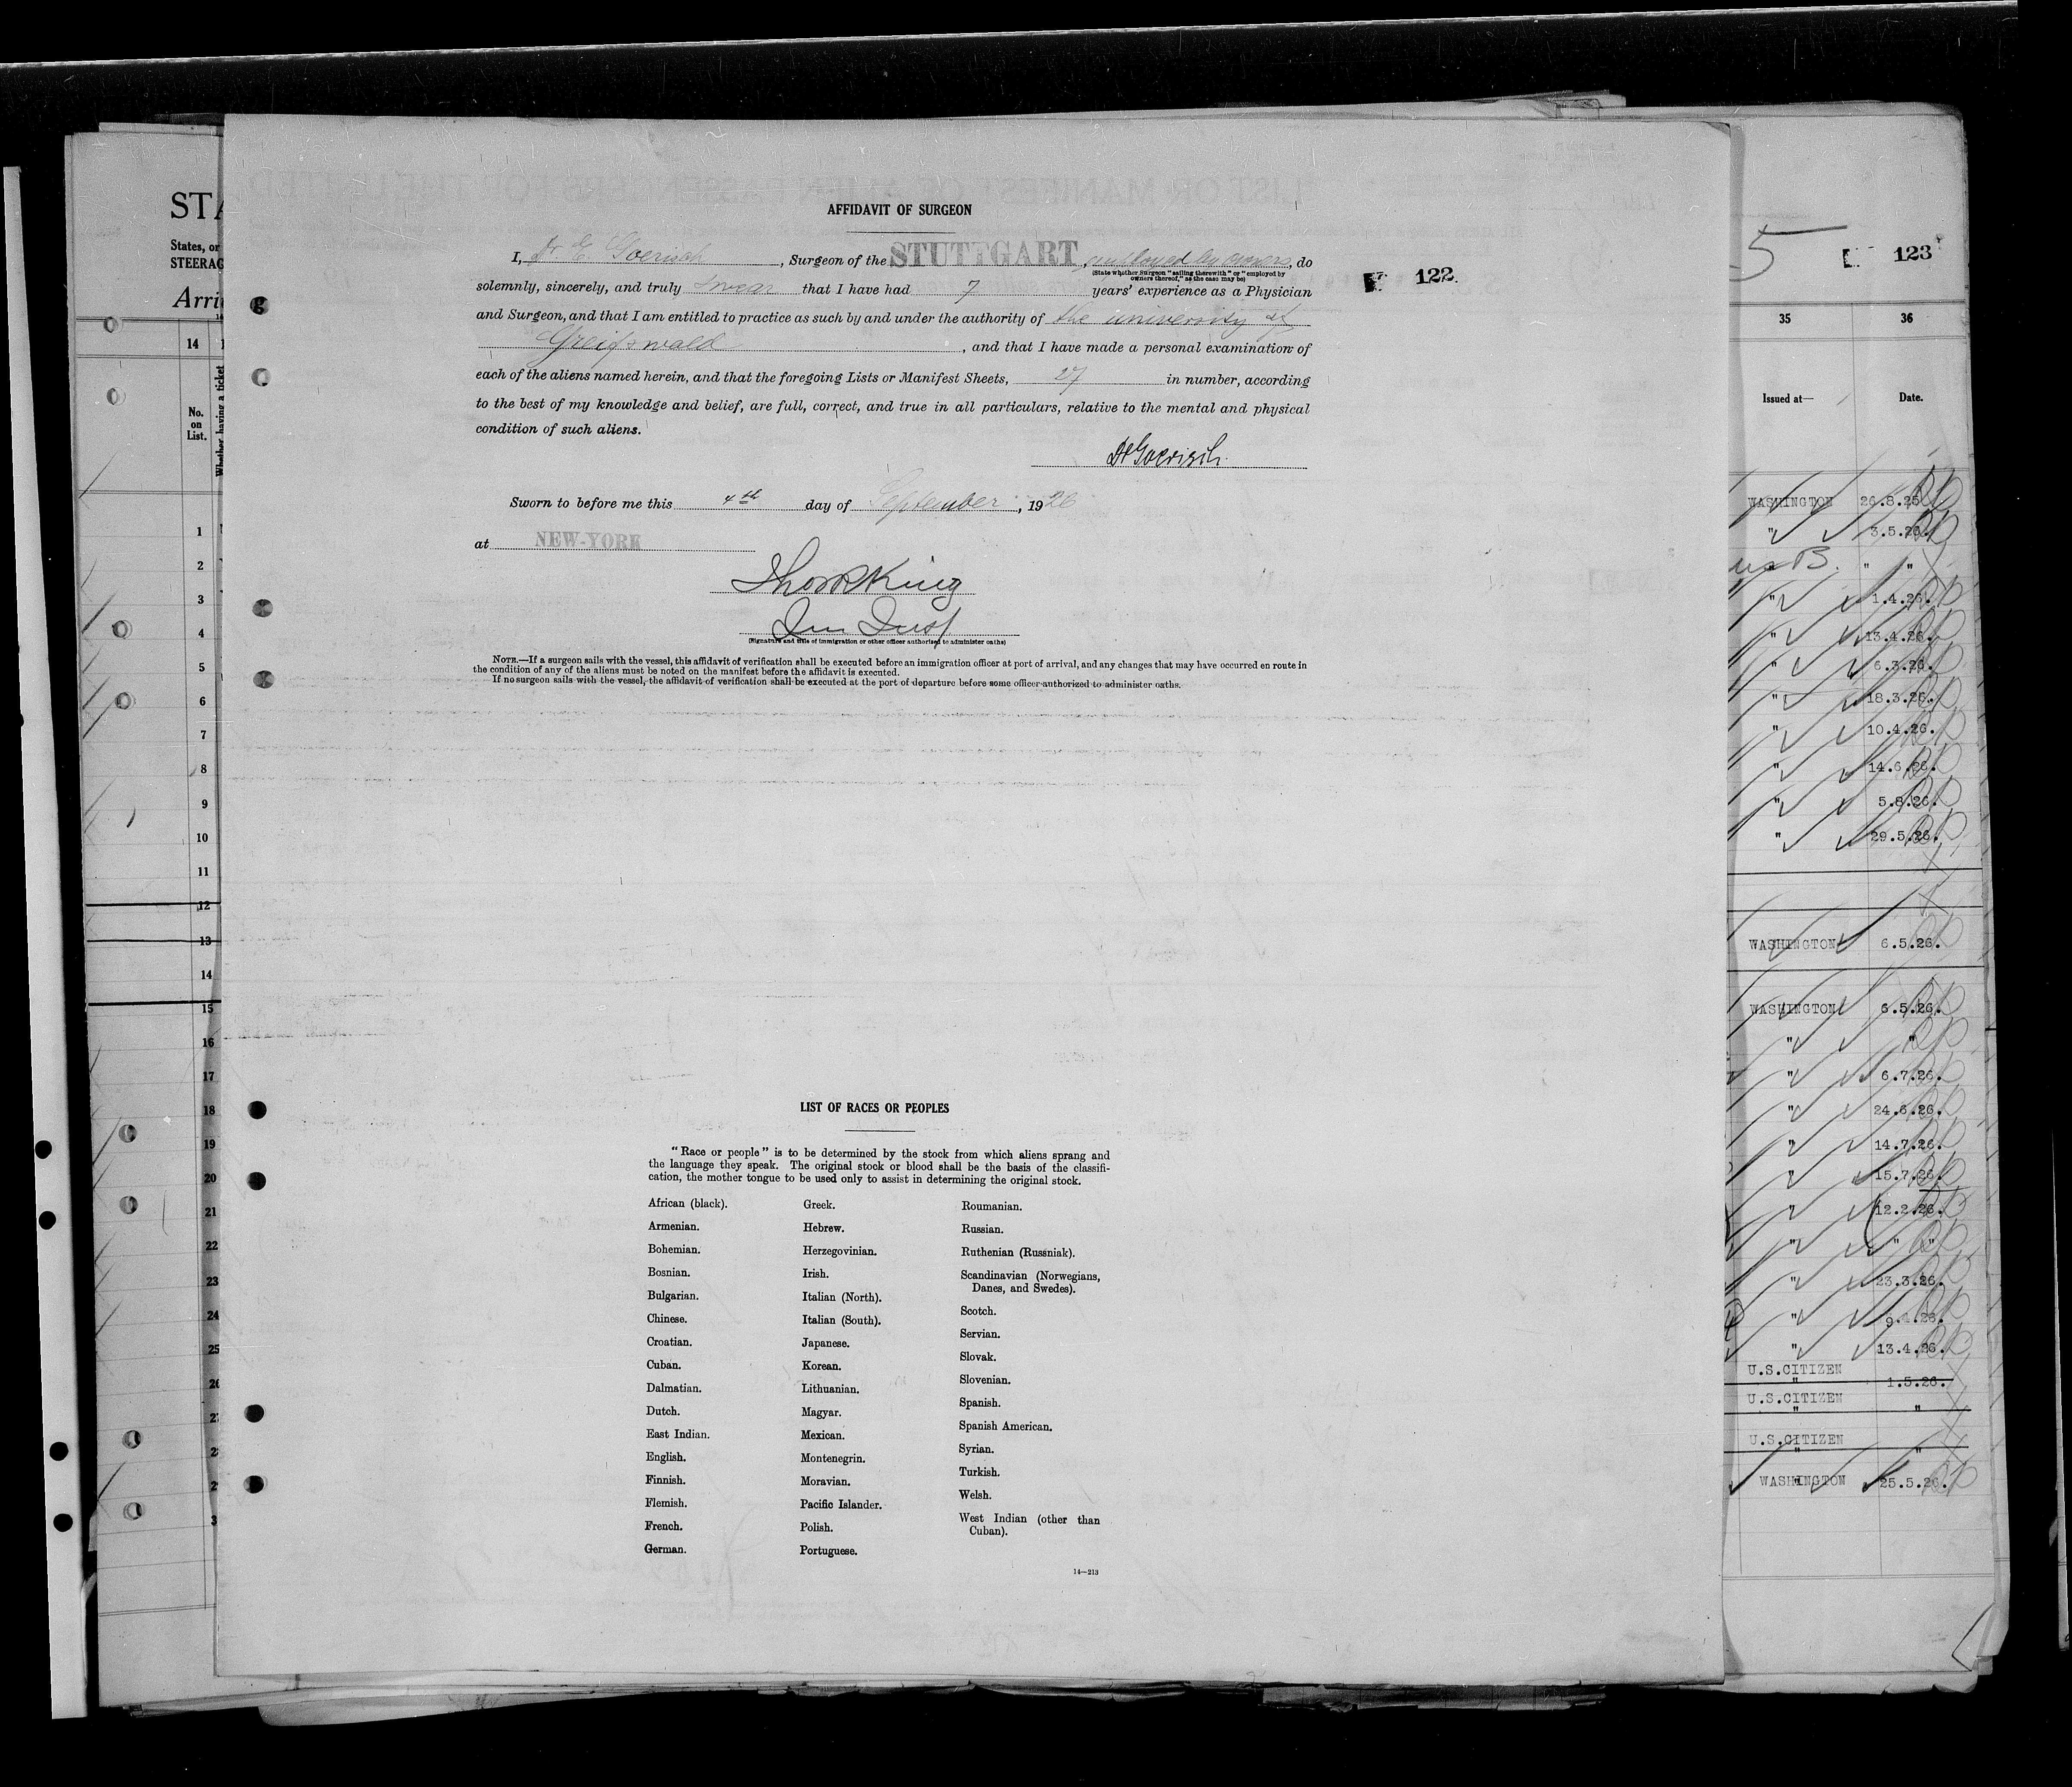 AFFIDAVIT OF SURGEON
I, Dr E. Goerisch, Surgeon of the STUTTGART, employed by owners, do
(State whether Surgeon "sailing therewith" or "employed by
owners thereof," as the case may be)
solemnly, sincerely, and truly swear that I have had 7 years' experience as a Physician
and Surgeon, and that I am entitled to practice as such by and under the authority of the university of
Greifswald, and that I have made a personal examination of
each of the aliens named herein, and that the foregoing Lists or Manifest Sheets, 27 in number, according
to the best of my knowledge and belief, are full, correct, and true in all particulars, relative to the mental and physical
condition of such aliens.
Dr Goerisch.
Sworn to before me this 4th day of September, 1926
at NEW-YORK
King
(Signature and title of immigration or other officer authorized to administer oaths)
NOTE.—If a surgeon sails with the vessel, this affidavit of verification shall be executed before an immigration officer at port of arrival, and any changes that may have occurred en route in
the condition of any of the aliens must be noted on the manifest before the affidavit is executed.
If no surgeon sails with the vessel, the affidavit of verification shall be executed at the port of departure before some officer authorized to administer oaths.
122.
LIST OF RACES OR PEOPLES
"Race or people" is to be determined by the stock from which aliens sprang and
the language they speak. The original stock or blood shall be the basis of the classifi-
cation, the mother tongue to be used only to assist in determining the original stock.
African (black).
Armenian.
Bohemian.
Bosnian.
Bulgarian.
Chinese.
Croatian.
Cuban.
Dalmatian.
Dutch.
East Indian.
English.
Finnish.
Flemish.
French.
German.
Greek.
Hebrew.
Herzegovinian.
Irish.
Italian (North).
Italian (South).
Japanese.
Korean.
Lithuanian.
Magyar.
Mexican.
Montenegrin.
Moravian.
Pacific Islander.
Polish.
Portuguese.
Roumanian.
Russian.
Ruthenian (Russniak).
Scandinavian (Norwegians,
Danes, and Swedes).
Scotch.
Servian.
Slovak.
Slovenian.
Spanish.
Spanish American.
Syrian.
Turkish.
Welsh.
West Indian (other than
Cuban).
14—213
STA
States, or
STEERAG
Arri
14
No.
on
List.
Whether having a ticket
1
2
3
4
5
6
7
8
9
10
11
12
13
14
15
16
17
18
19
20
21
22
23
24
25
26
5
123
35 36
Issued at— Date.
WASHINGTON 26.8.25
" 3.5.26.
" "
" 1.4.26.
" 13.4.26.
" 6.3.26.
" 18.3.26.
" 10.4.26.
" 14.6.26.
" 5.8.26.
" 29.5.26.
WASHINGTON 6.5.26.
WASHINGTON 6.5.26.
" "
" 6.7.26.
" 24.6.26.
" 14.7.26.
" 15.7.26.
" 12.2.26.
" " "
" 23.3.26.
" 9.4.26.
" 13.4.26.
U.S.CITIZEN
" 1.5.26.
U.S.CITIZEN
" "
U.S.CITIZEN
" "
WASHINGTON 25.5.26.